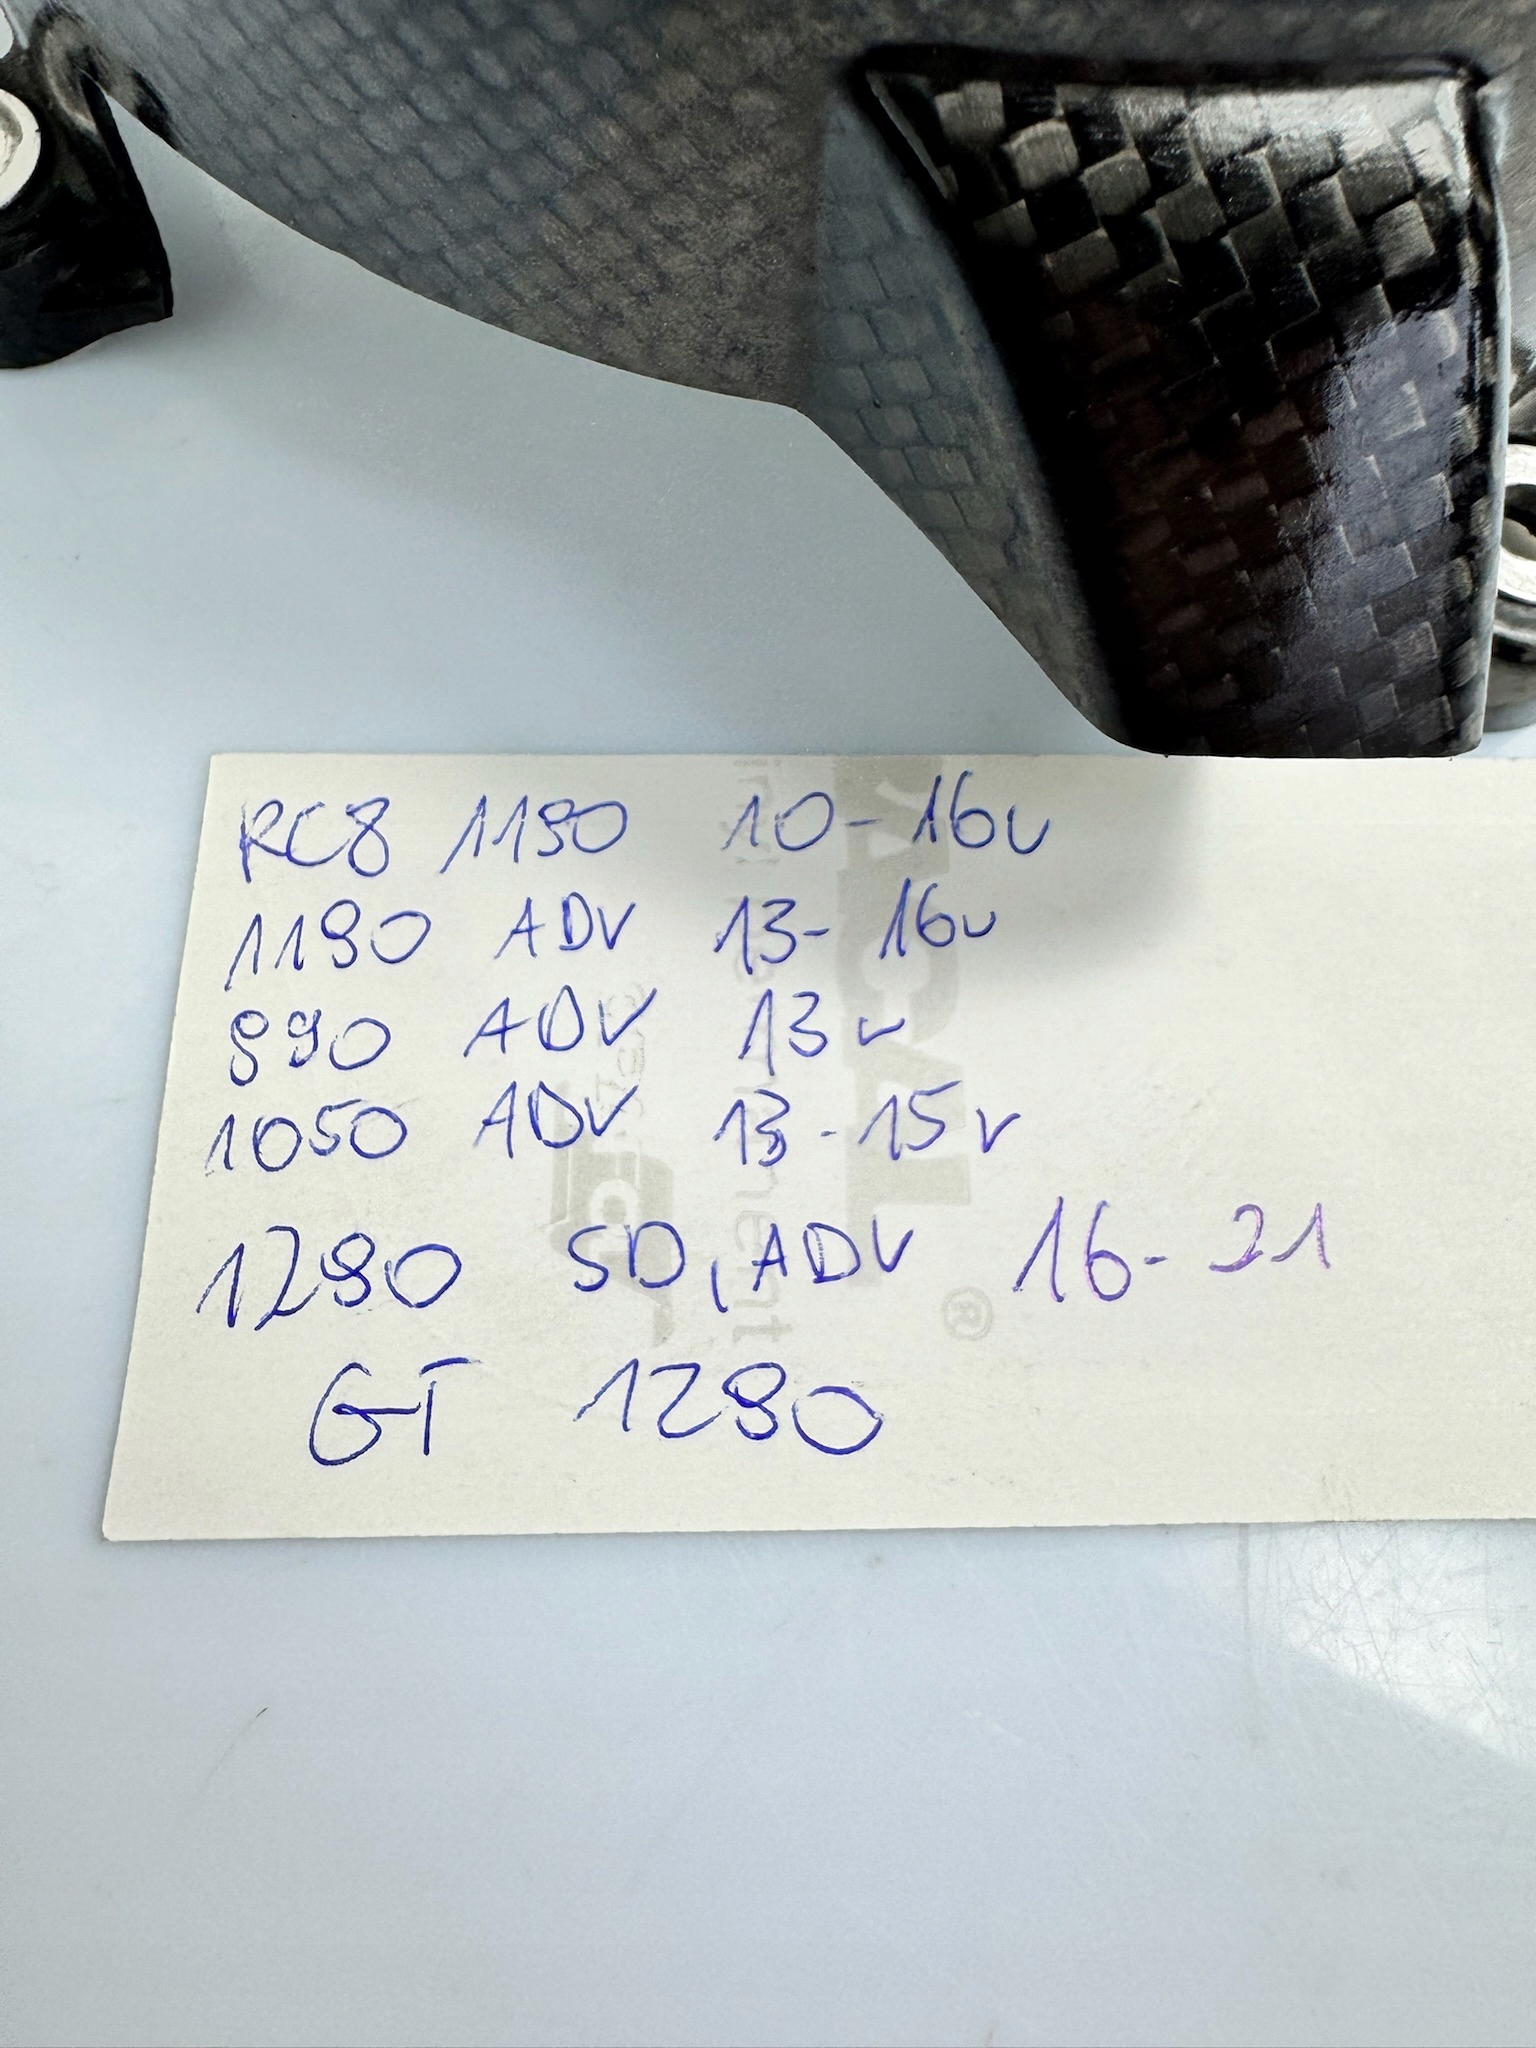 RC8 1190 10-16v
1190 ADV 13-16v
890 ADV 13v
1050 ADV 13-15v
1290 SD, ADV 16-21
GT 1290
®